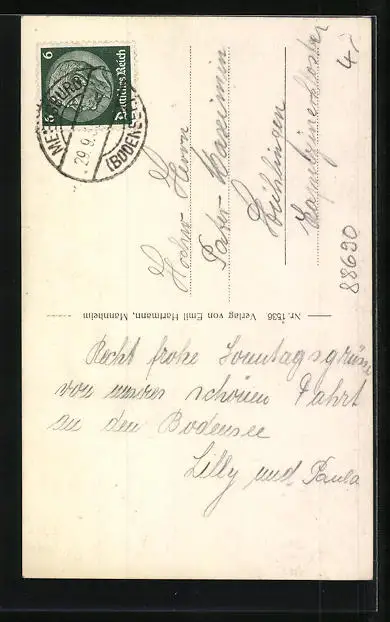 6
Deutsches Reich
MEERSBURG
29.9.
(BODENSEE)
Hochw. Herrn
Pater Maximin
Stühlingen
Kapuzinerkloster
4,-
88690
Nr. 1536 Verlag von Emil Hartmann, Mannheim
Recht frohe Sonntagsgrüsse
von unserer schönen Fahrt
an den Bodensee
Lilly und Paula